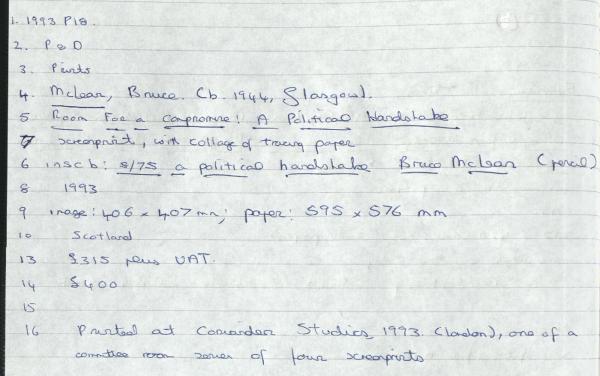 1. 1993 P18.
2. P & D
3. Prints
4. McLean, Bruce. (b. 1944, Glasgow).
5 Room For a compromise: A Political Handshake
7 screenprint, with collage of tracing paper
6 inscb: 8/75 a political handshake Bruce McLean (pencil)
8 1993
9 image: 406 x 407 mm; paper: 595 x 576 mm
10 Scotland
13 £315 plus VAT.
14 £400
15
16 Printed at Coriander Studios, 1993. (London), one of a
committee room series of four screenprints